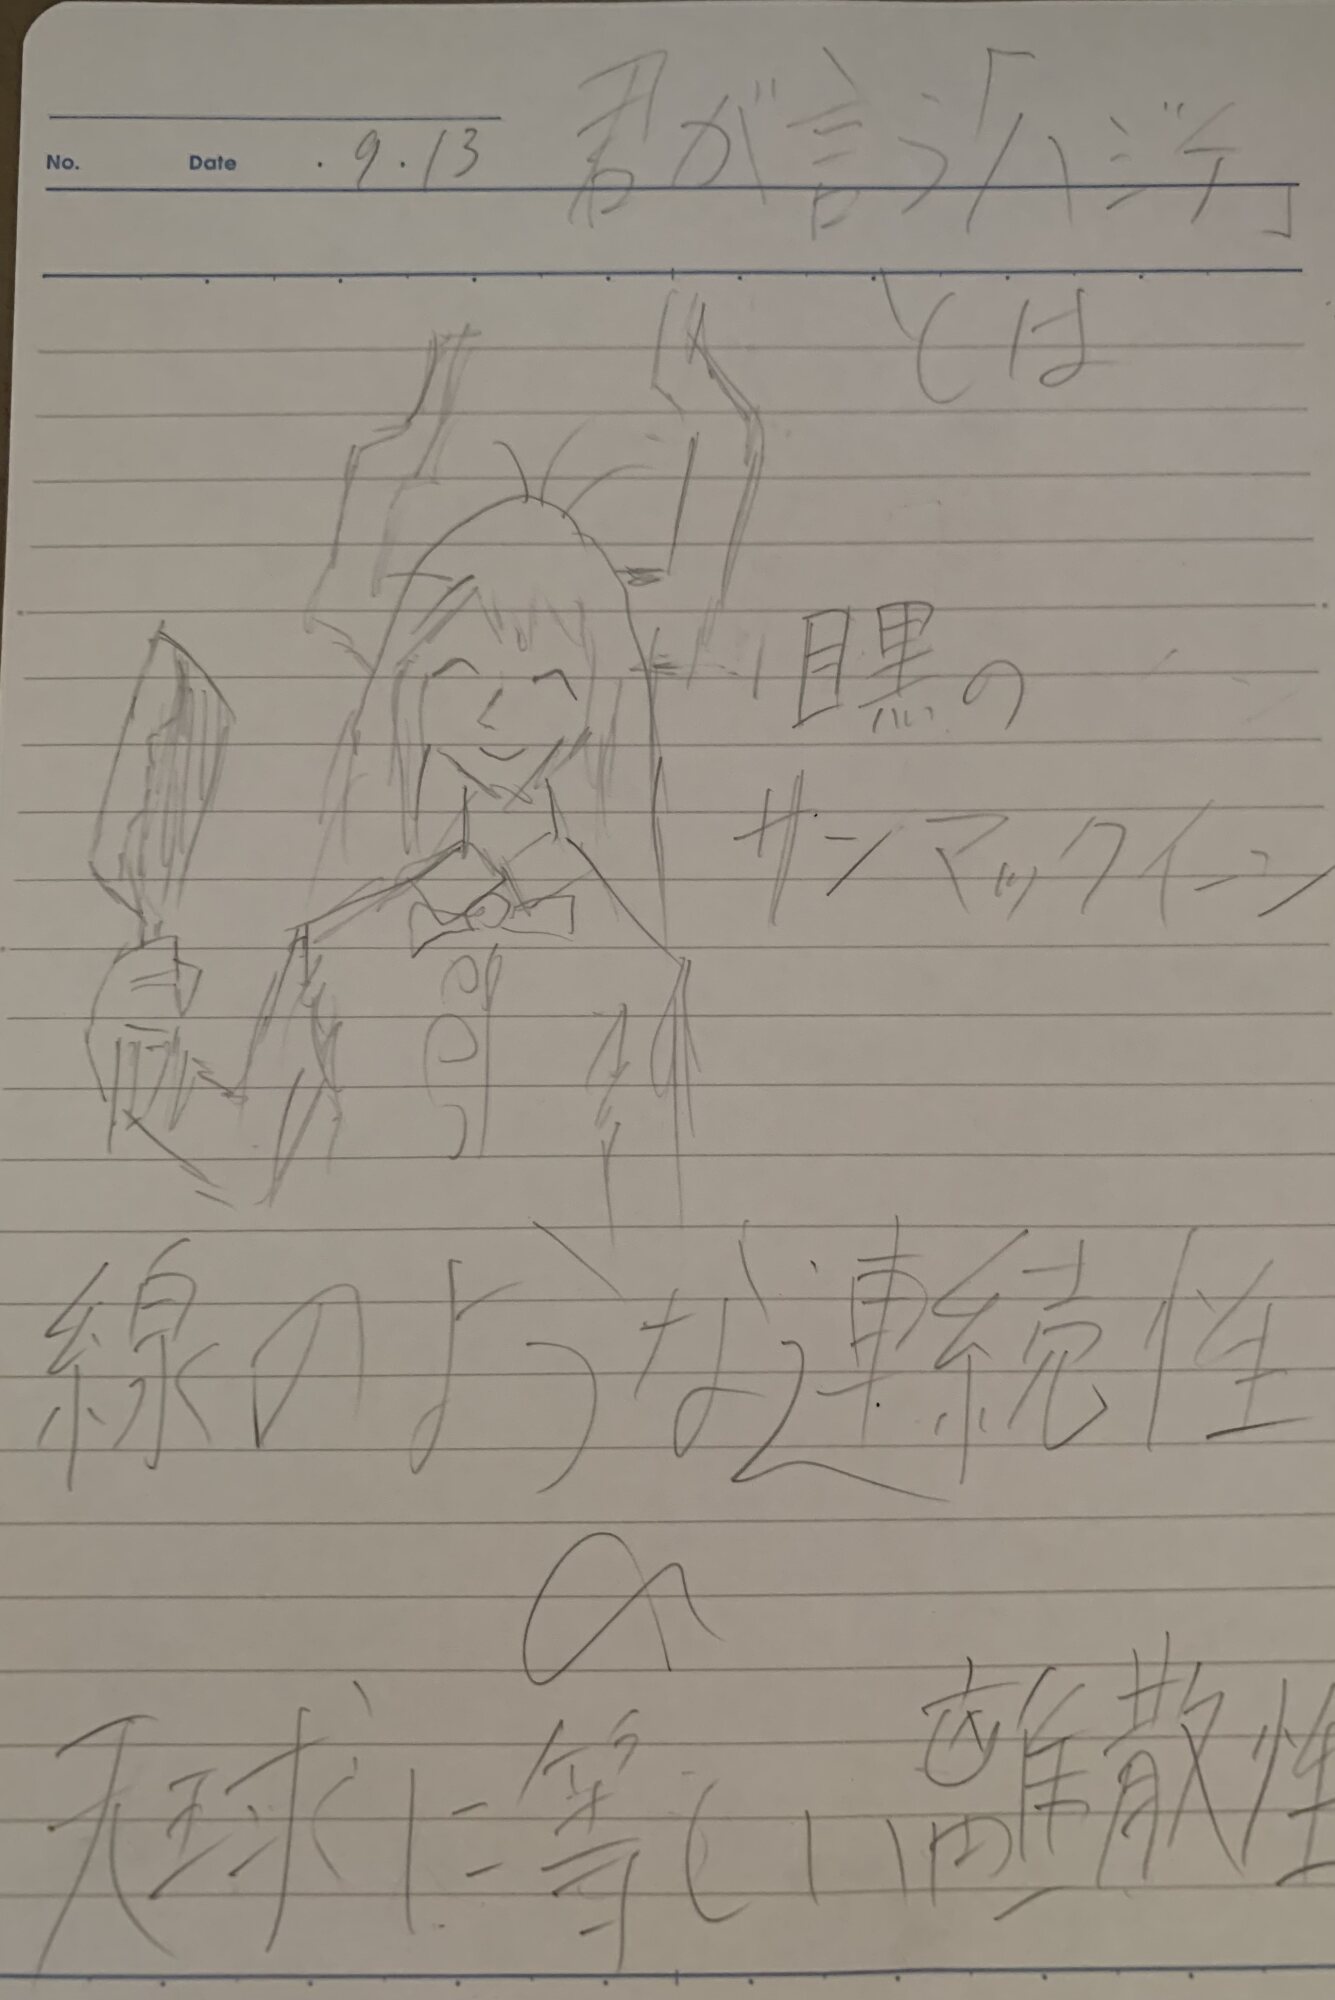 No. Date ・9・13
君が言う「ハジケ」
とは
目黒の
サンマックイーン
線のような連続性
の
天球に等しい離散性